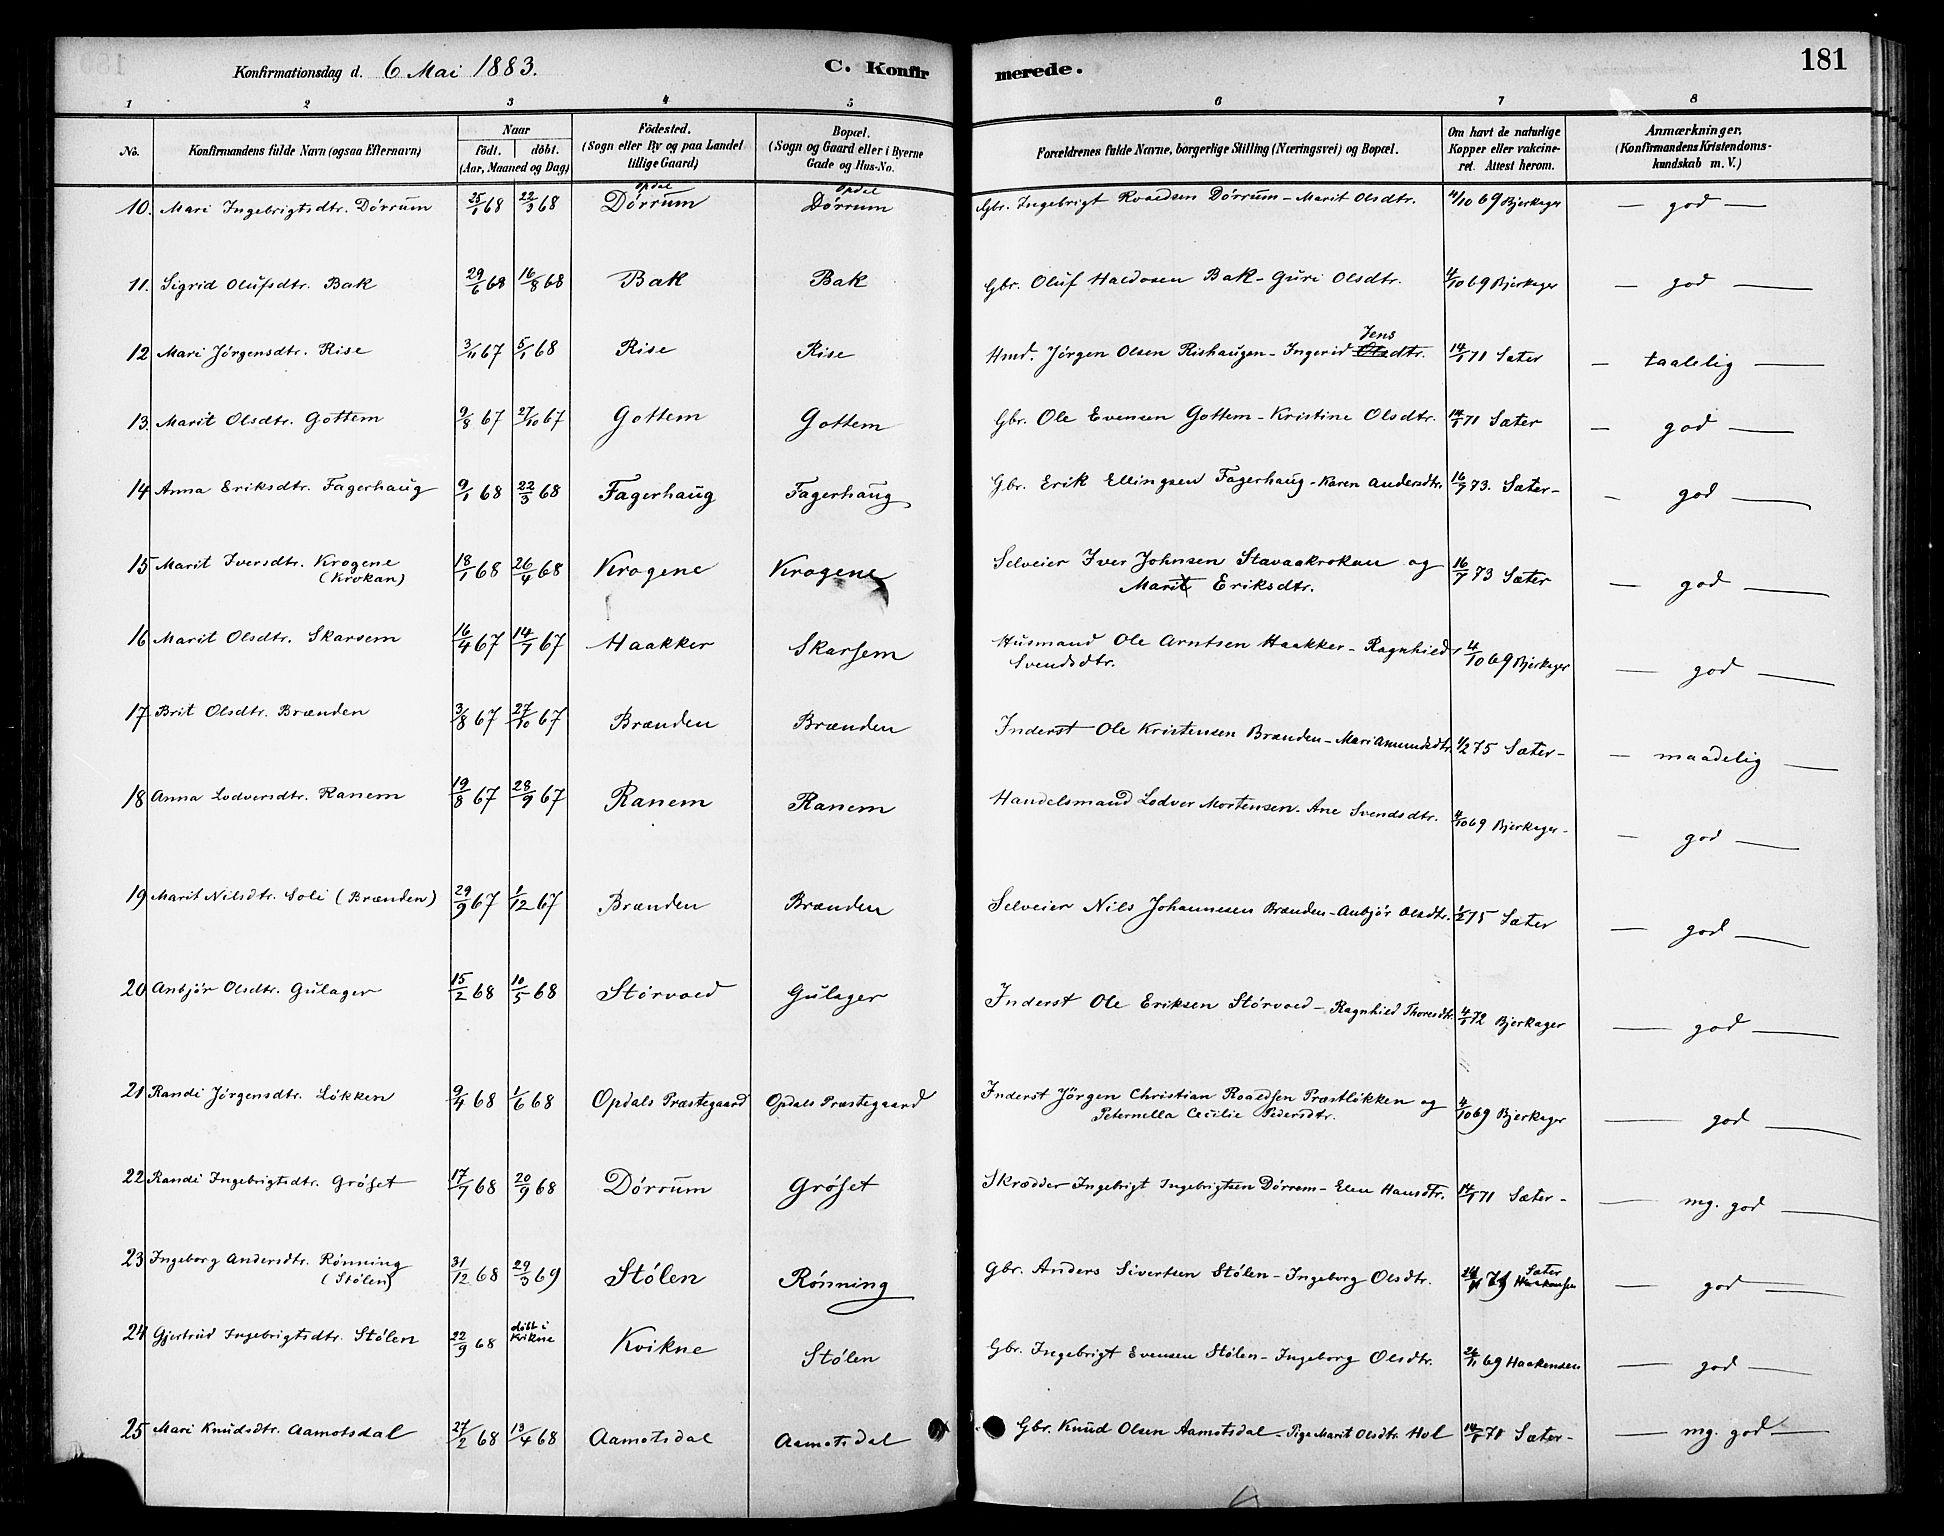 Konfirmationsdag d. 6 Mai 1883. C. Konfirmerede. 181
1 2 3 4 5 6 7 8
No. Konfirmandens fulde Navn (ogsaa Efternavn) Naar födt. döbt. (Aar, Maaned og Dag) Födested. (Sogn eller By og paa Landet tillige Gaard) Bopæl. (Sogn og Gaard eller i Byerne Gade og Hus-No. Forældrenes fulde Navne, borgerlige Stilling (Næringsvei) og Bopæl. Om havt de naturlige Kopper eller vakcineret. Attest herom. Anmærkninger, (Konfirmandens Kristendomskundskab m. V.)
10. Mari Ingebrigtsdtr. Dörrum 25/1 68 22/3 68 Opdal Dörrum Opdal Dörrum Gbr. Ingebrigt Roaldsen Dörrum - Marit Olsdtr. 4/10 69 Bjerkager — god —
11. Sigrid Olufsdtr. Bak 29/6 68 16/8 68 Bak Bak Gbr. Oluf Haldosen Bak - Guri Olsdtr. 4/10 69 Bjerkager — god —
12 Mari Jörgensdtr. Rise 3/11 67 5/1 68 Rise Rise Hmd. Jörgen Olsen Rishaugen - Ingerid Jensdtr. 14/1 71 Sæter — taalelig —
13. Marit Olsdtr. Gottem 9/8 67 27/10 67 Gottem Gottem Gbr. Ole Evensen Gottem - Kristine Olsdtr. 14/1 71 Sæter — god —
14 Anna Eriksdtr. Fagerhaug 9/1 68 22/3 68 Fagerhaug Fagerhaug Gbr. Erik Ellingsen Fagerhaug - Karen Andersdtr. 16/7 73. Sæter - — god —
15 Marit Iversdtr. Krogene (Krokan) 18/1 68 26/4 68 Krogene Krogene Selveier Iver Johnsen Stavaakrokan og Marit Eriksdtr. 16/7 73 Sæter — god —
16 Marit Olsdtr. Skarsem 16/4 67 14/7 67 Haakker Skarsem Husmand Ole Arntsen Haakker - Ragnhild Svendsdtr. 4/10 69 Bjerkager — god —
17 Brit Olsdtr. Brænden 3/8 67 27/10 67 Brænden Brænden Inderst Ole Kristensen Brænden - Mari Amundsdtr. 1/2 75 Sæter - — maadelig —
18 Anna Lodversdtr. Ranem 19/8 67 28/9 67 Ranem Ranem Handelsmand Lodver Mortensen - Ane Svendsdtr. 4/10 69 Bjerkager - — god —
19 Marit Nilsdtr. Soli (Brænden) 29/9 67 1/12 67 Brænden Brænden Selveier Nils Johannesen Brænden - Anbjör Olsdtr. 1/2 75 Sæter — god —
20 Anbjör Olsdtr. Gulager 15/2 68 10/5 68 Störvold Gulager Inderst Ole Eriksen Störvold - Ragnhild Thoresdtr. 4/1 72 Bjerkager — god —
21 Randi Jörgensdtr. Lökken 9/4 68 1/6 68 Opdals Præstegaard Opdals Præstegaard Inderst Jörgen Christian Roaldsen Præstlökken og Peternella Cecilie Pedersdtr. 4/10 69 Bjerkager — god —
22 Randi Ingebrigtsdtr. Gröset 17/7 68 20/9 68 Dörrum Gröset Skrædder Ingebrigt Ingebrigtsen Dörrem - Elen Hansdtr. 14/1 71 Sæter - — mg. god —
23 Ingeborg Andersdtr. Rönning (Stölen) 31/12 68 29/3 69 Stölen Rönning Gbr. Anders Sivertsen Stölen - Ingeborg Olsdtr. 71 Sæter — god —
24 Gjertrud Ingebrigtsdtr. Stölen 22/9 68 döbt i Kvikne Kvikne Stölen Gbr. Ingebrigt Evensen Stölen - Ingeborg Olsdtr. 24/11 69 Haakensen — god —
25 Mari Knudsdtr. Aamotsdal 27/2 68 13/4 68 Aamotsdal Aamotsdal Gbr. Knud Olsen Aamotsdal - Pige Marit Olsdtr. Hol 14/1 71 Sæter - — mg. god —